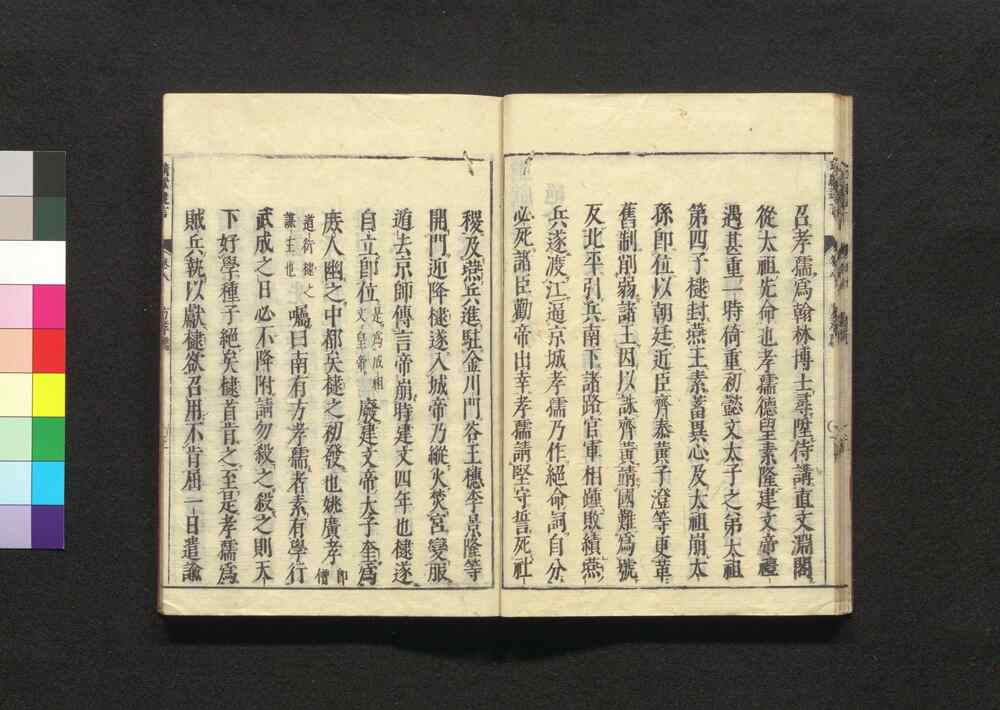 召孝孺爲翰林博士尋陞侍講直文淵閣
從太祖先命也孝孺德望素隆建文帝禮
遇甚重一時倚重初懿文太子之弟太祖
第四子棣封燕王素蓄異心及太祖崩太
孫即位以朝廷近臣齊泰黃子澄等更革
舊制削弱諸王因以誅齊黃靖國難爲號
反北平引兵南下諸路官軍相踵敗績燕
兵遂渡江逼京城孝孺乃作絕命詞自分
必死諸臣勸帝出幸孝孺請堅守誓死社
稷及燕兵進駐金川門谷王橞李景隆等
開門迎降棣遂入城帝乃縱火焚宮變服
遁去京師傳言帝崩時建文四年也棣遂
自立即位是爲成祖文皇帝廢建文帝太子奎爲
庶人幽之中都矣棣之初發也姚廣孝即僧
道衍棣之謀主也囑曰南有方孝孺者素有學行
武成之日必不降附請勿殺之殺之則天
下好學種子絕矣棣首肯之至是孝孺爲
賊兵執以獻棣欲召用不肯屈一日遣諭